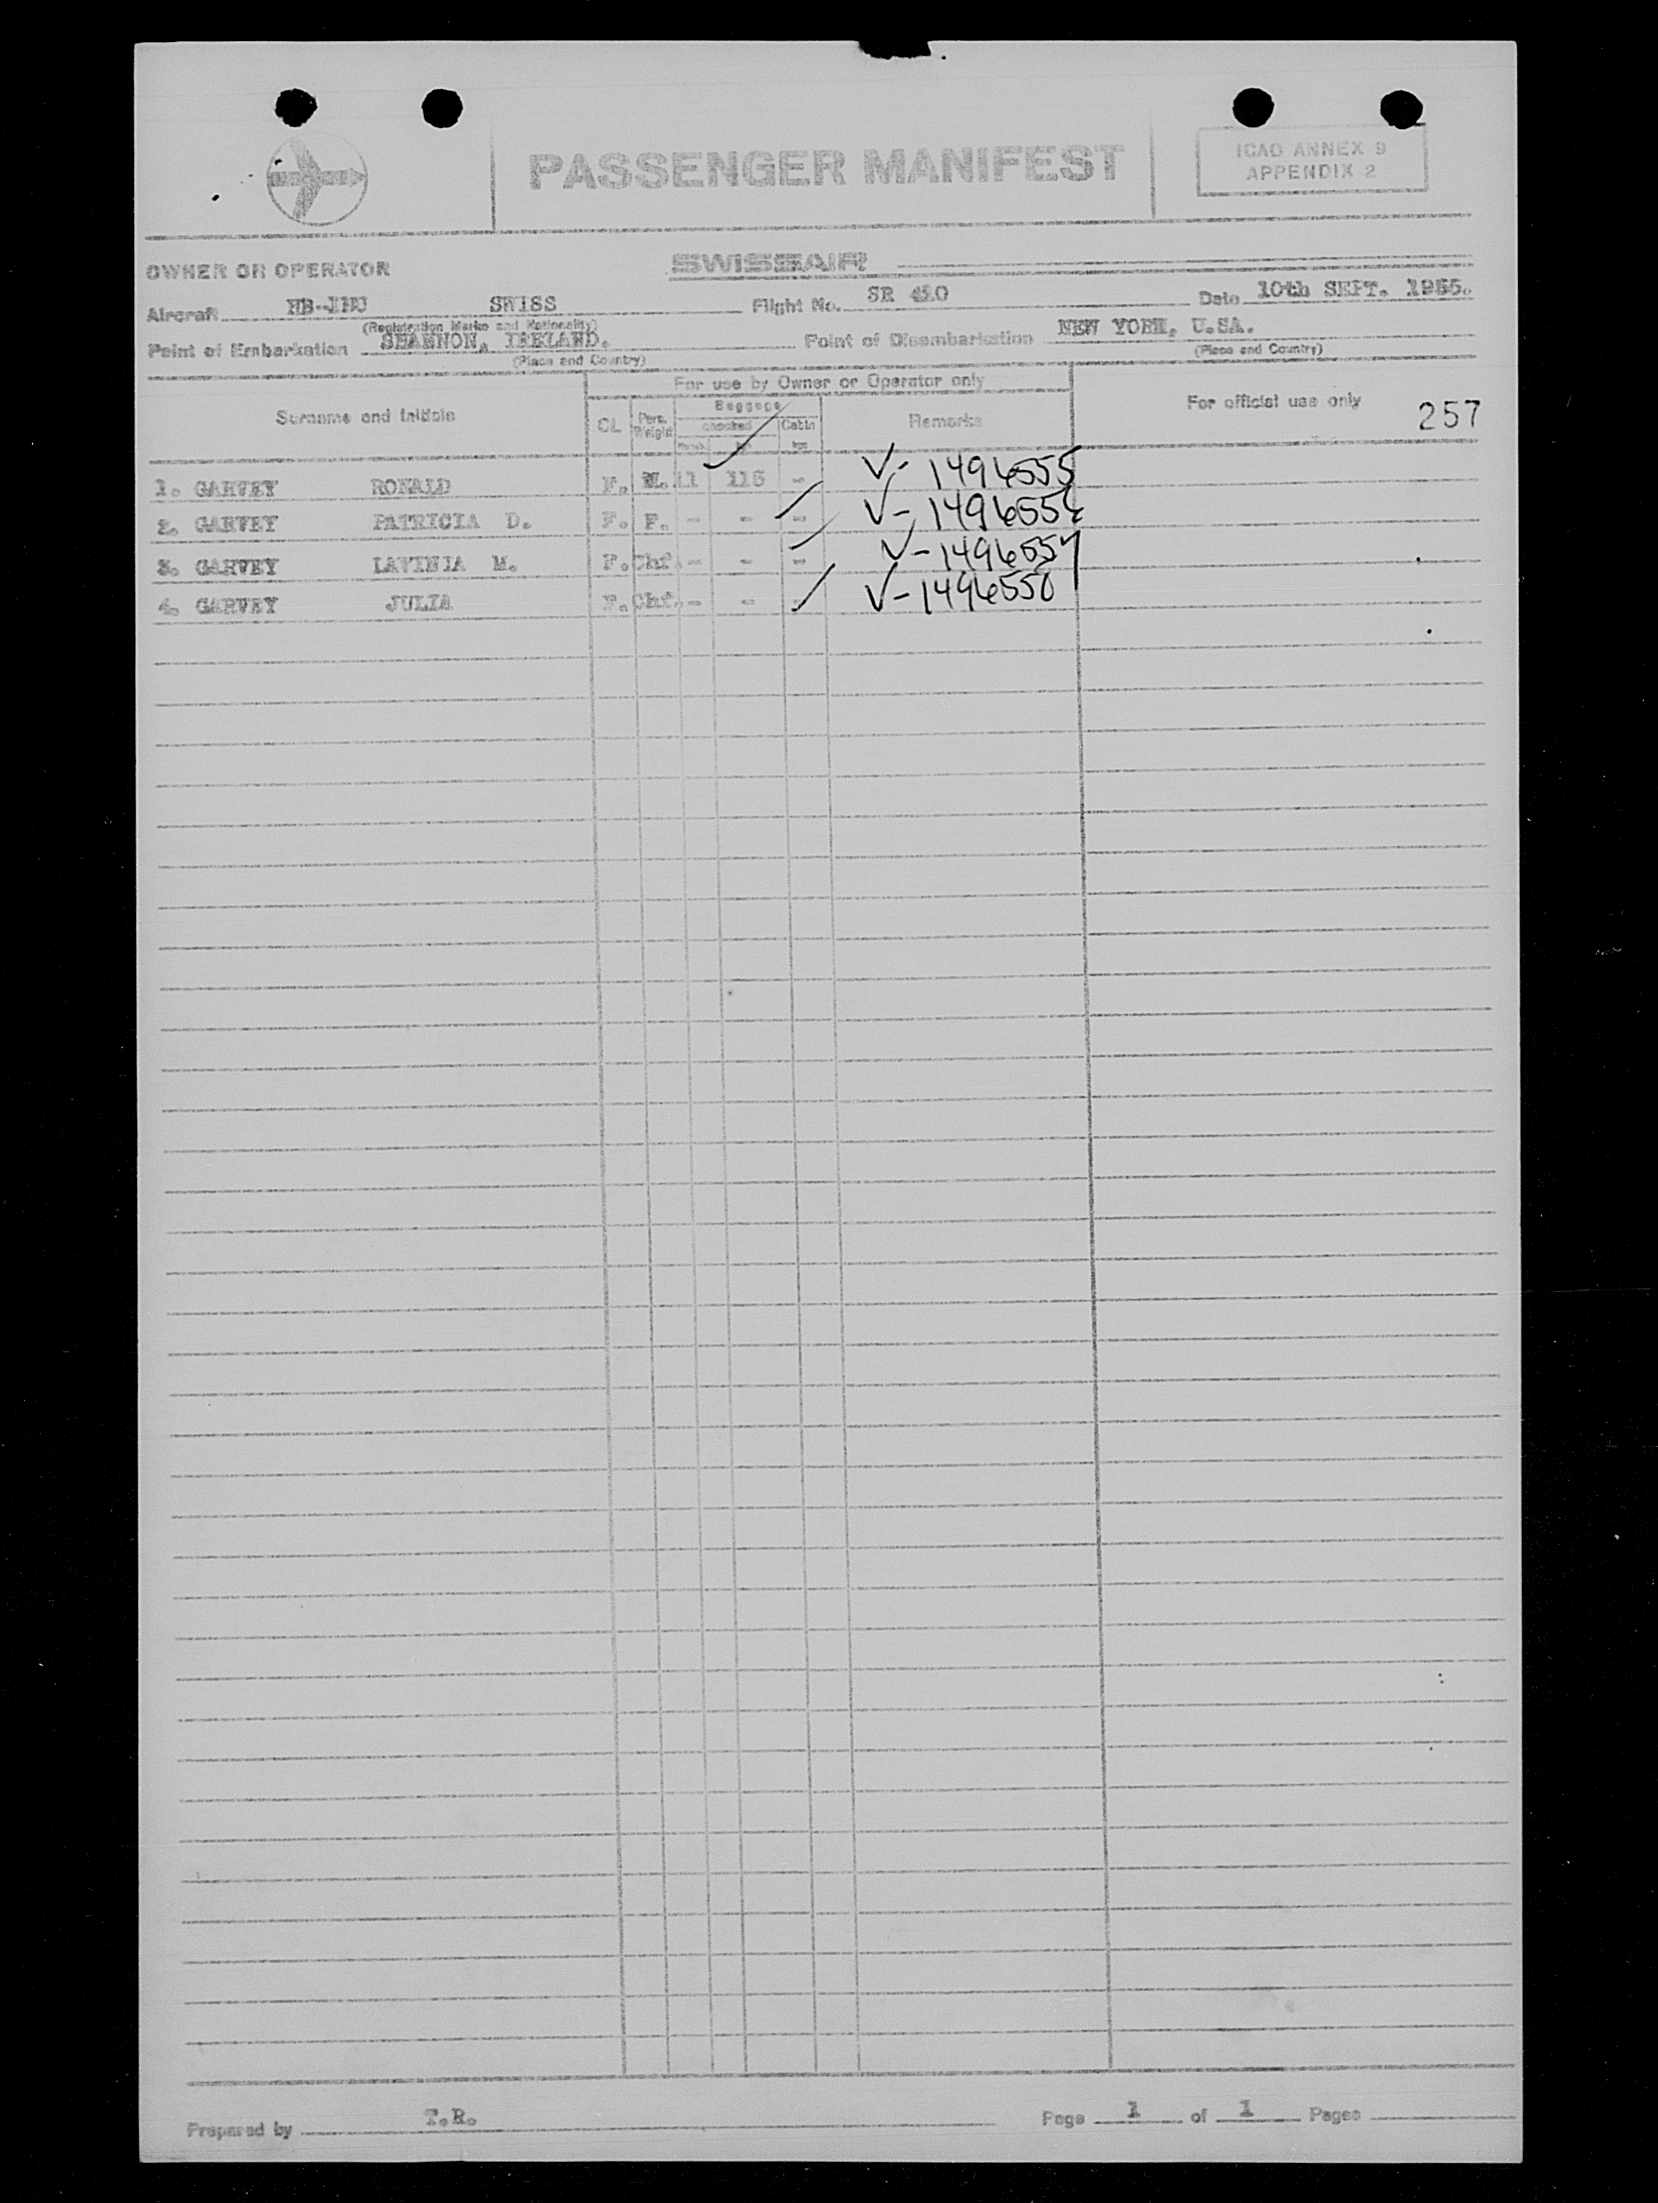 PASSENGER MANIFEST
ICAO ANNEX 9
APPENDIX 2
OWNER OR OPERATOR SWISSAIR
Aircraft SWISS Flight No. SR Date 10th SEPT.
(Registration Marks and Nationality)
Point of Embarkation SHANNON, IRELAND. Point of Disembarkation NEW YORK, U.SA.
(Place and Country) (Place and Country)
For use by Owner or Operator only
Surname and Initials CL Pers. Weight Baggage checked Cabin Remarks For official use only 257
1. GARVEY RONALD F. M. 11 115 - V- 1496555
2. GARVEY PATRICIA D. F. F. - - - V- 1496556
3. GARVEY LAVINIA M. F. Chf. - - - V- 1496557
4. GARVEY JULIA F. Chf. - - - V- 1496558
Prepared by T.R. Page 1 of 1 Pages